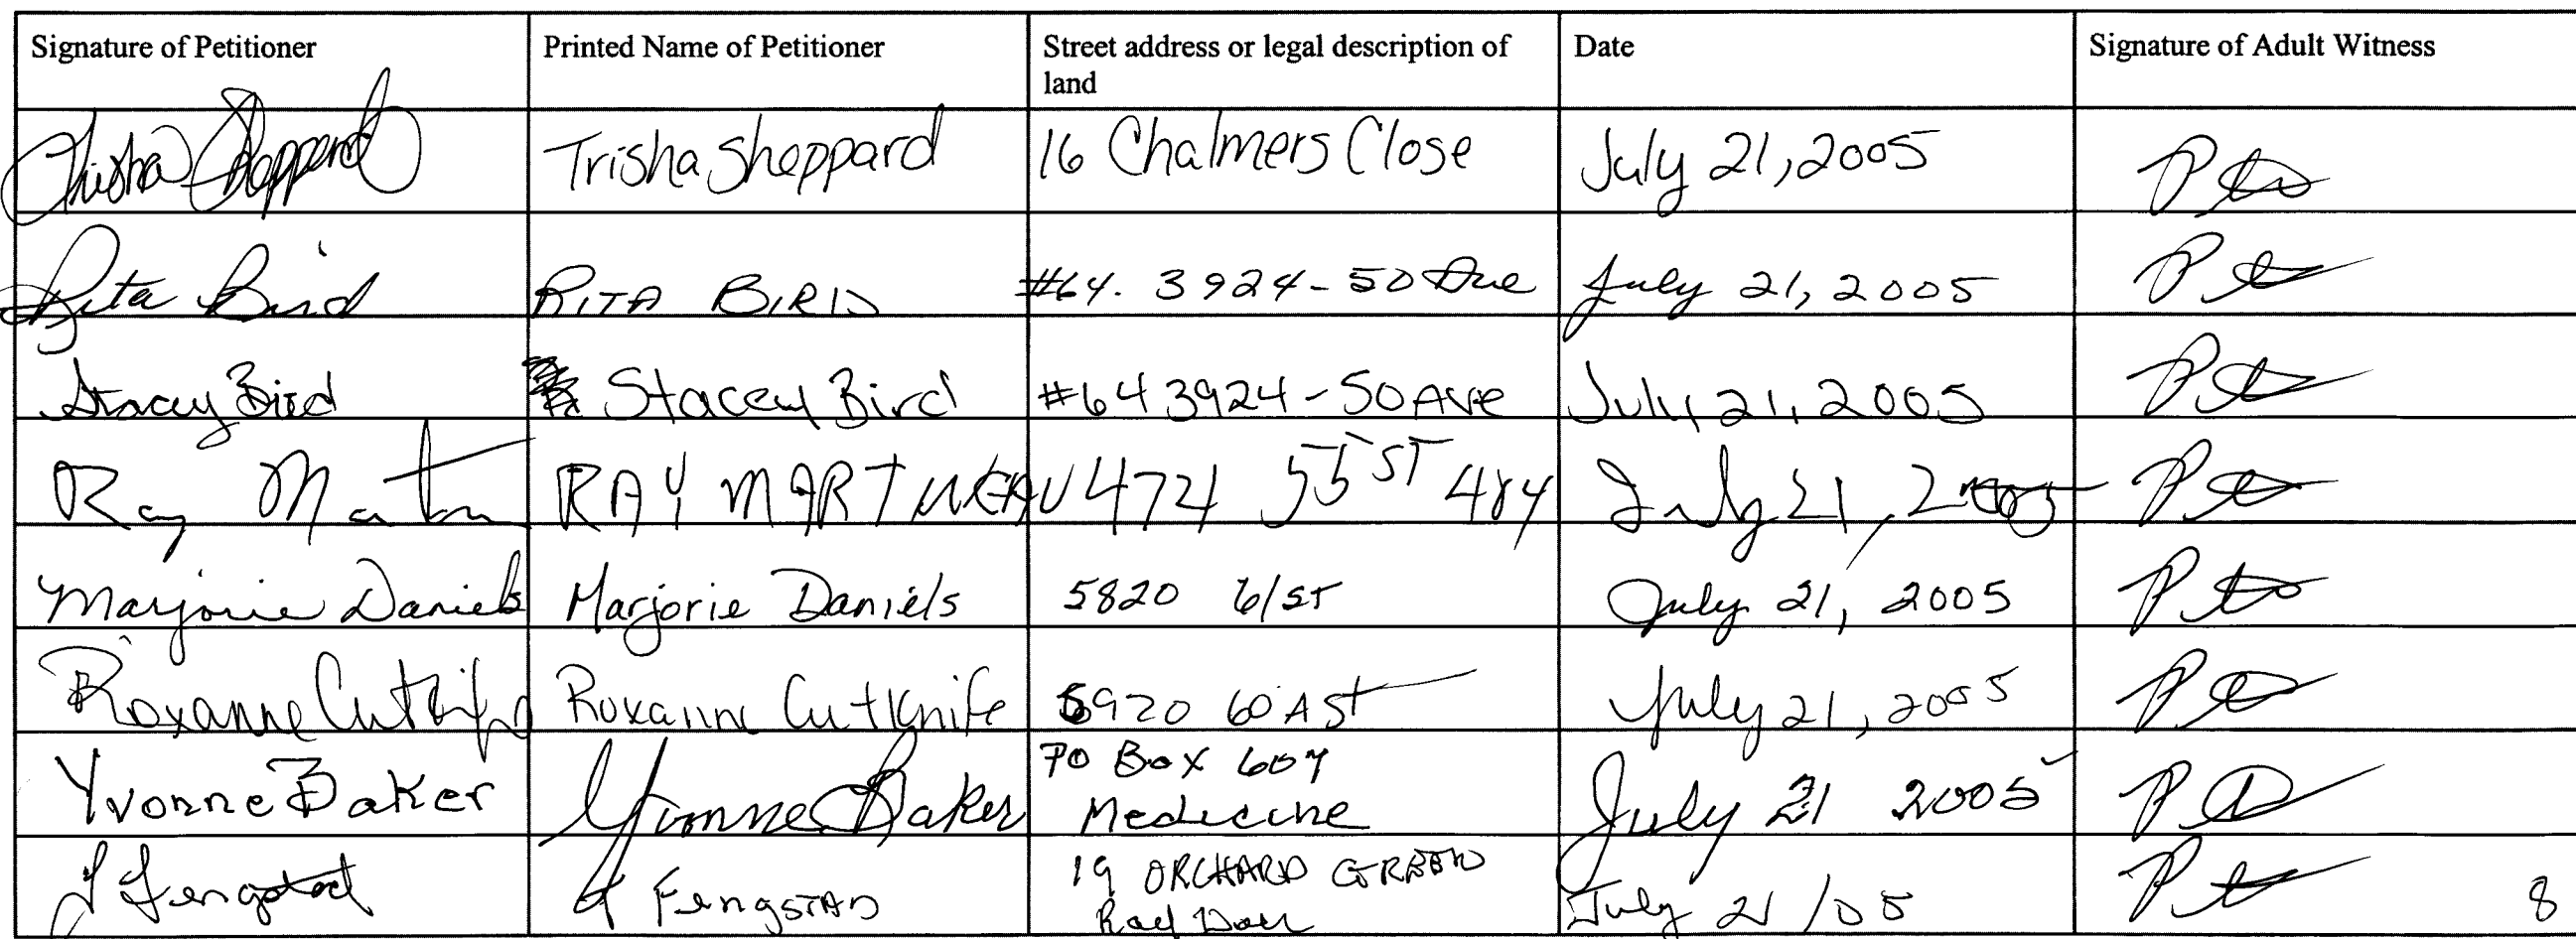 Signature of Petitioner Printed Name of Petitioner Street address or legal description of Date Signature of Adult Witness
land
Trisha Sheppard Trisha Sheppard 16 Chalmers Close July 21, 2005
Rita Bird RITA BIRD #64. 3924-50 Ave July 21, 2005
Stacey Bird Stacey Bird #64 3924-50 Ave July 21, 2005
Ray RAY MARTINEAU 474 55 ST 484 July 21, 2005
Marjorie Daniels Marjorie Daniels 5820 61 ST July 21, 2005
Roxanne Cutknife Roxanne Cutknife 5920 60 A St July 21, 2005
Yvonne Baker Yvonne Baker PO Box 607 July 21 2005
Medicine
Fengstad Fengstad 19 ORCHARD GREEN July 21/05
8